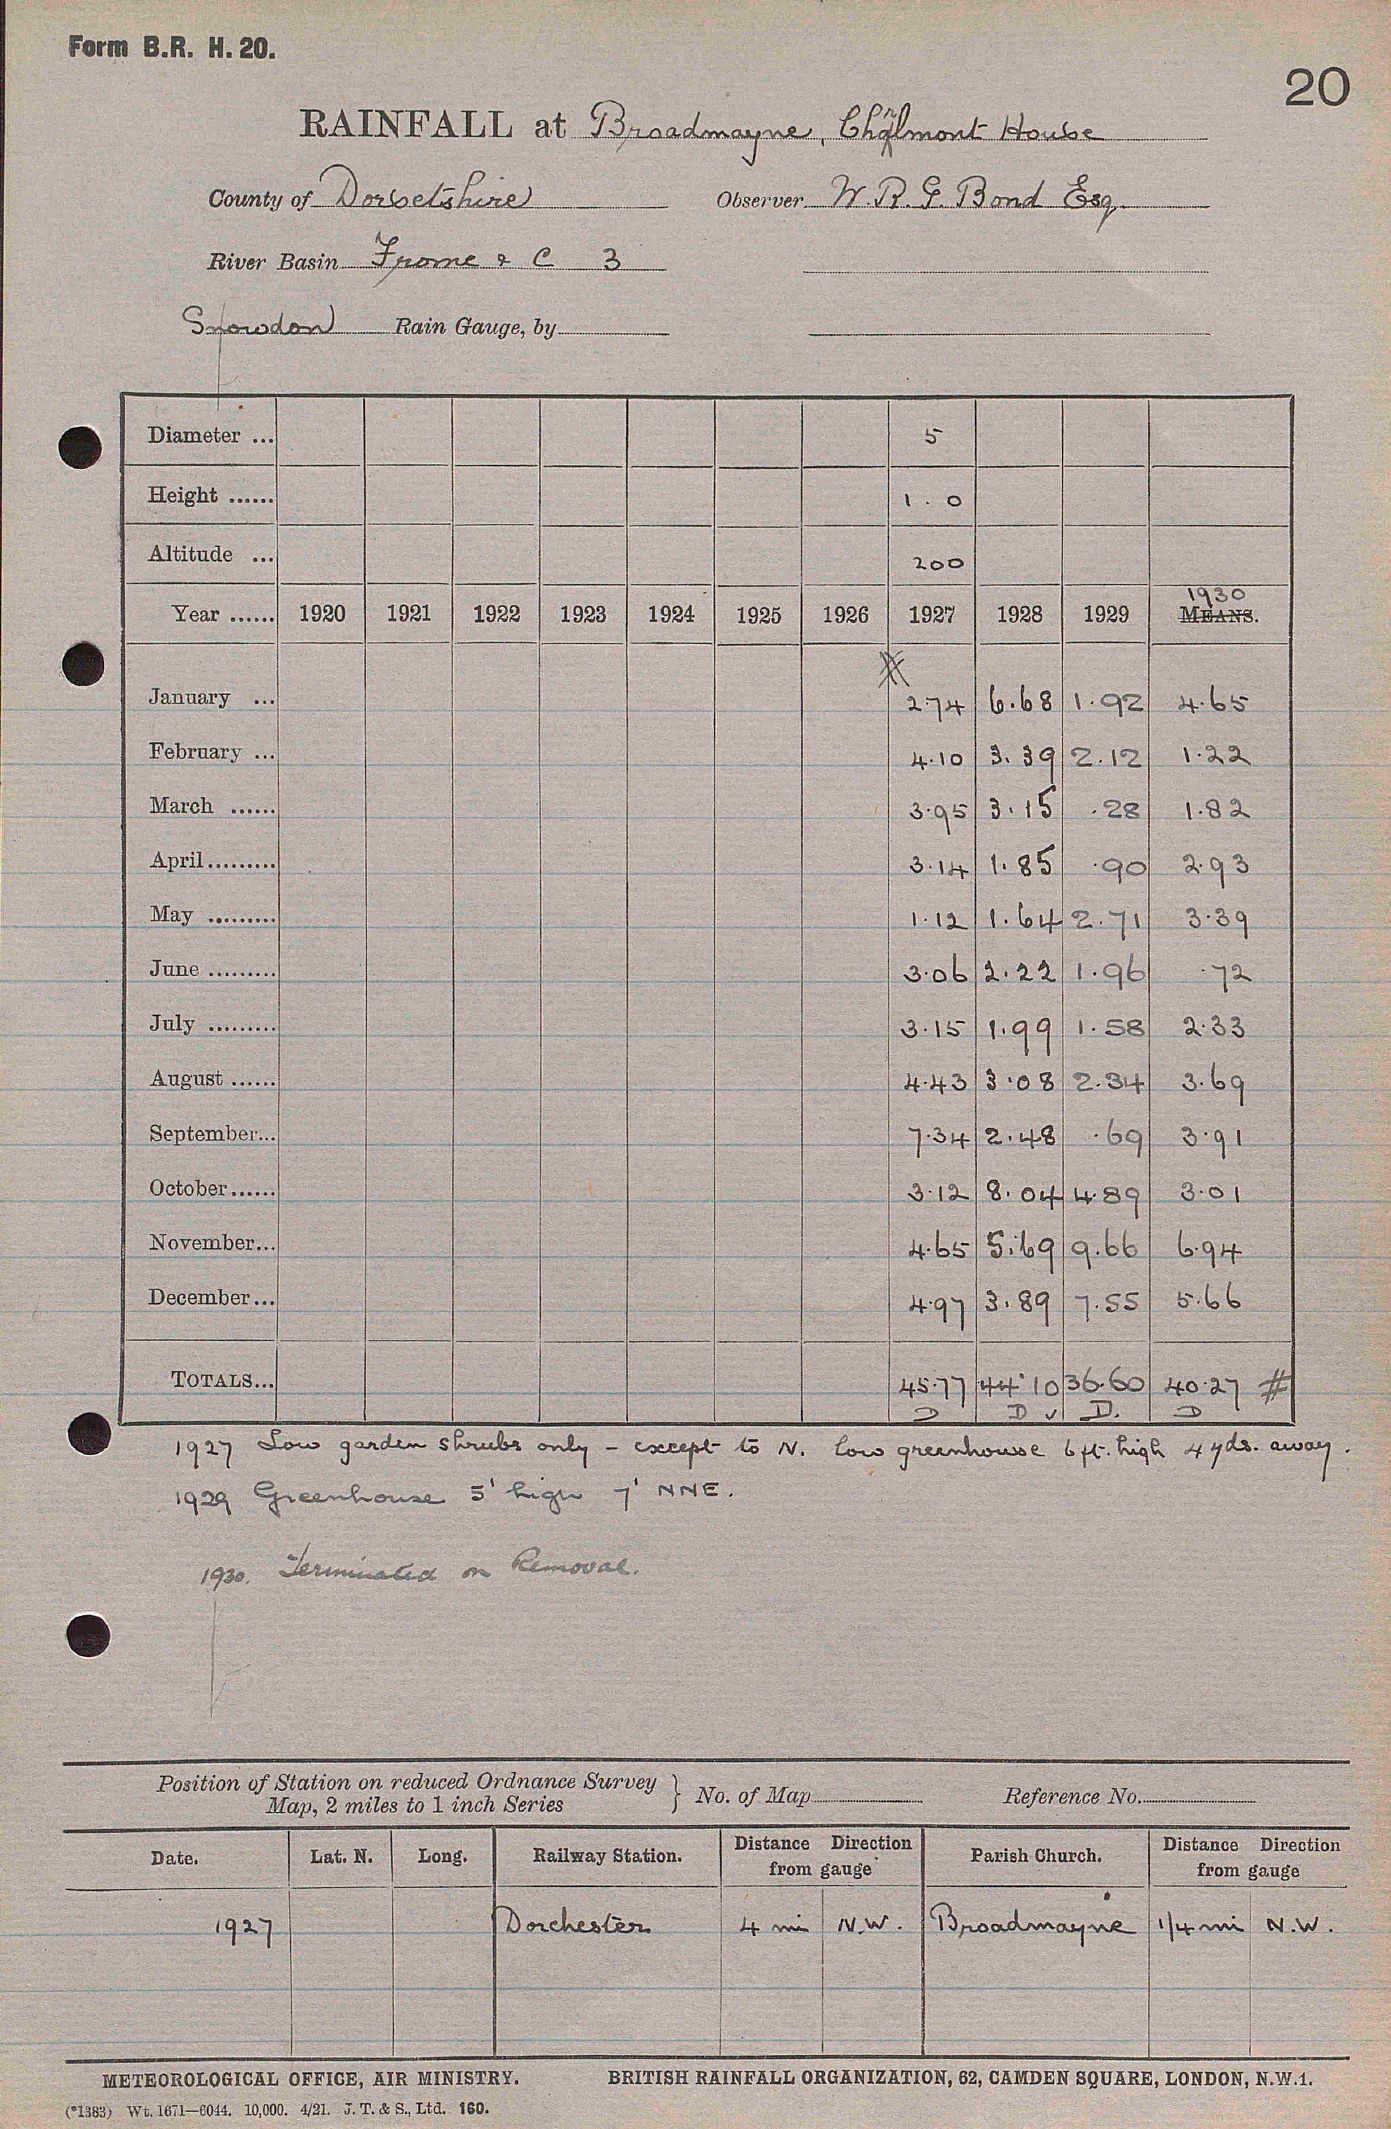 Form B.R. H. 20.
20
RAINFALL at Broadmayne, Chalmont House
County of Dorsetshire Observer W. R. G. Bond Esq.
River Basin Frome & C 3
Snowdon Rain Gauge, by
Diameter ... 5
Height ...... 1.0
Altitude ... 200
Year ...... 1920 1921 1922 1923 1924 1925 1926 1927 1928 1929 1930 MEANS.
January ... 2.74 6.68 1.92 4.65
February ... 4.10 3.39 2.12 1.22
March ...... 3.95 3.15 .28 1.82
April......... 3.14 1.85 .90 2.93
May ......... 1.12 1.64 2.71 3.39
June ......... 3.06 2.22 1.96 .72
July ......... 3.15 1.99 1.58 2.33
August ...... 4.43 3.08 2.34 3.69
September... 7.34 2.48 .69 3.91
October...... 3.12 8.04 4.89 3.01
November... 4.65 5.69 9.66 6.94
December... 4.97 3.89 7.55 5.66
TOTALS... 45.77 44.10 36.60 40.27 #
D D ✓ D. D
1927 Low garden shrubs only – except to N. low greenhouse 6 ft. high 4 yds. away.
1929 Greenhouse 5' high 7' NNE.
1930. Terminated on Removal.
Position of Station on reduced Ordnance Survey Map, 2 miles to 1 inch Series } No. of Map Reference No.
Date. Lat. N. Long. Railway Station. Distance Direction from gauge Parish Church. Distance Direction from gauge
1927 Dorchester 4 mi N.W. Broadmayne 1/4 mi N.W.
METEOROLOGICAL OFFICE, AIR MINISTRY. BRITISH RAINFALL ORGANIZATION, 62, CAMDEN SQUARE, LONDON, N.W.1.
(*1383) Wt. 1671—6044. 10,000. 4/21. J. T. & S., Ltd. 160.